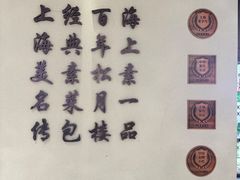 海上素一品
百年松月楼
经典素菜包
上海美名传